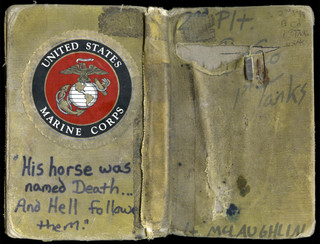 UNITED STATES
MARINE CORPS
"His horse was
named Death...
And Hell followe
them."
Plt.
Tanks
Lt McLAUGHLIN